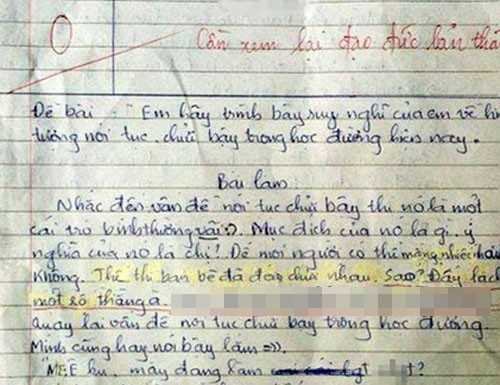 0
Cần xem lại đạo đức bản thâ
Đề bài : "Em hãy trình bày suy nghĩ của em về hi
tượng nói tục, chửi bậy trong học đường hiện nay.
Bài làm
Nhắc đến vấn đề nói tục chửi bậy thì nó là một
cái trò bình thường vãi :). Mục đích của nó là gì, ý
nghĩa của nó là chi? Để mọi người có thể mắng nhiếc nhau
không. Thế thì bạn bè đã đéo chửi nhau. Sao? Đấy là cá
một số thằng
quay lại vấn đề nói tục chửi bậy trong học đường
Mình cũng hay nói bậy lắm =)).
ku, mày đang làm